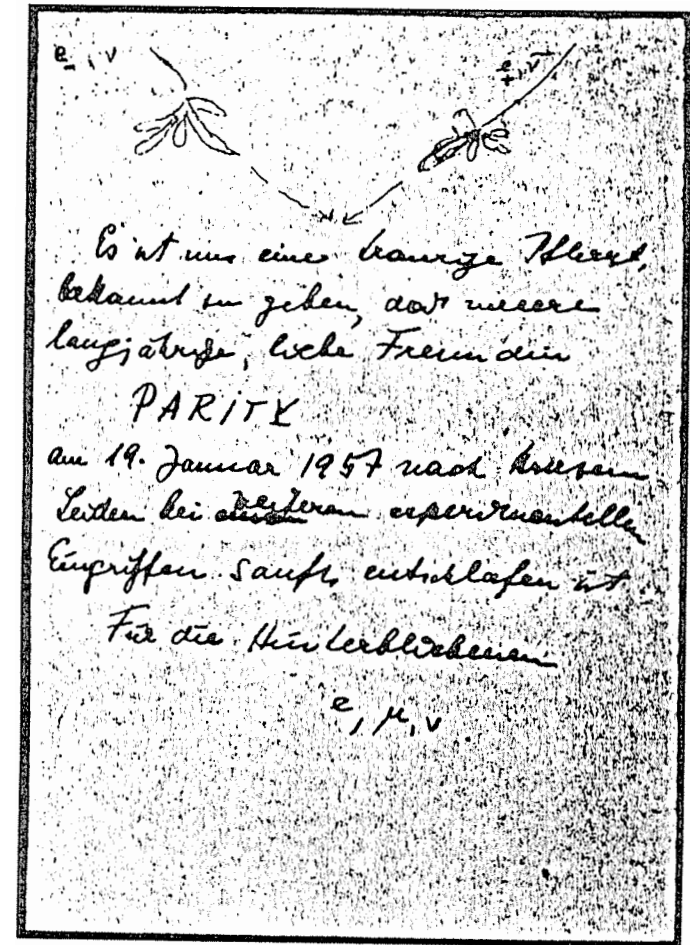 e_, ν
e+, ν̄
Es ist uns eine traurige Pflicht,
bekannt zu geben, daß unsere
langjährige, liebe Freundin
PARITY
am 19. Januar 1957 nach kurzem
Leiden bei weiteren experimentellen
Eingriffen sanft entschlafen ist.
Für die Hinterbliebenen
e, μ, ν